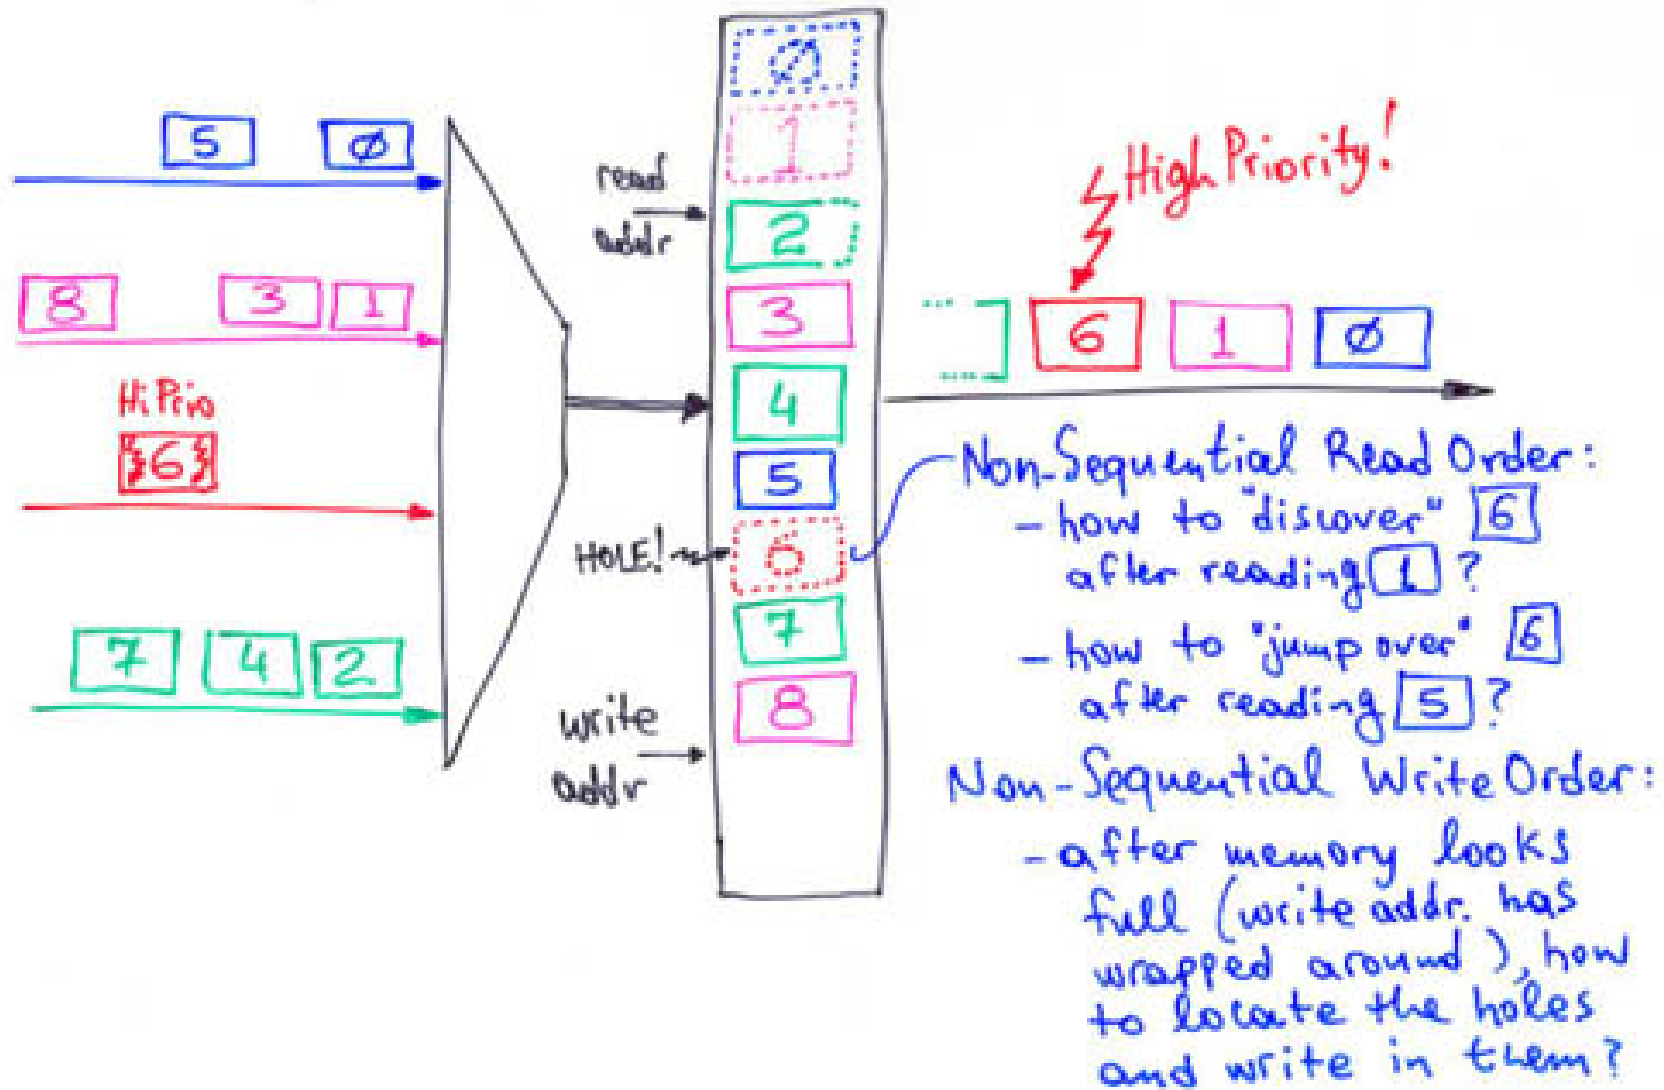 5 Ø
8 3 1
Hi Prio
6
7 4 2
read
addr
HOLE!
write
addr
Ø
1
2
3
4
5
6
7
8
High Priority!
6 1 Ø
Non-Sequential Read Order:
- how to "discover" 6
after reading 1 ?
- how to "jump over" 6
after reading 5 ?
Non-Sequential Write Order:
- after memory looks
full (write addr. has
wrapped around), how
to locate the holes
and write in them?